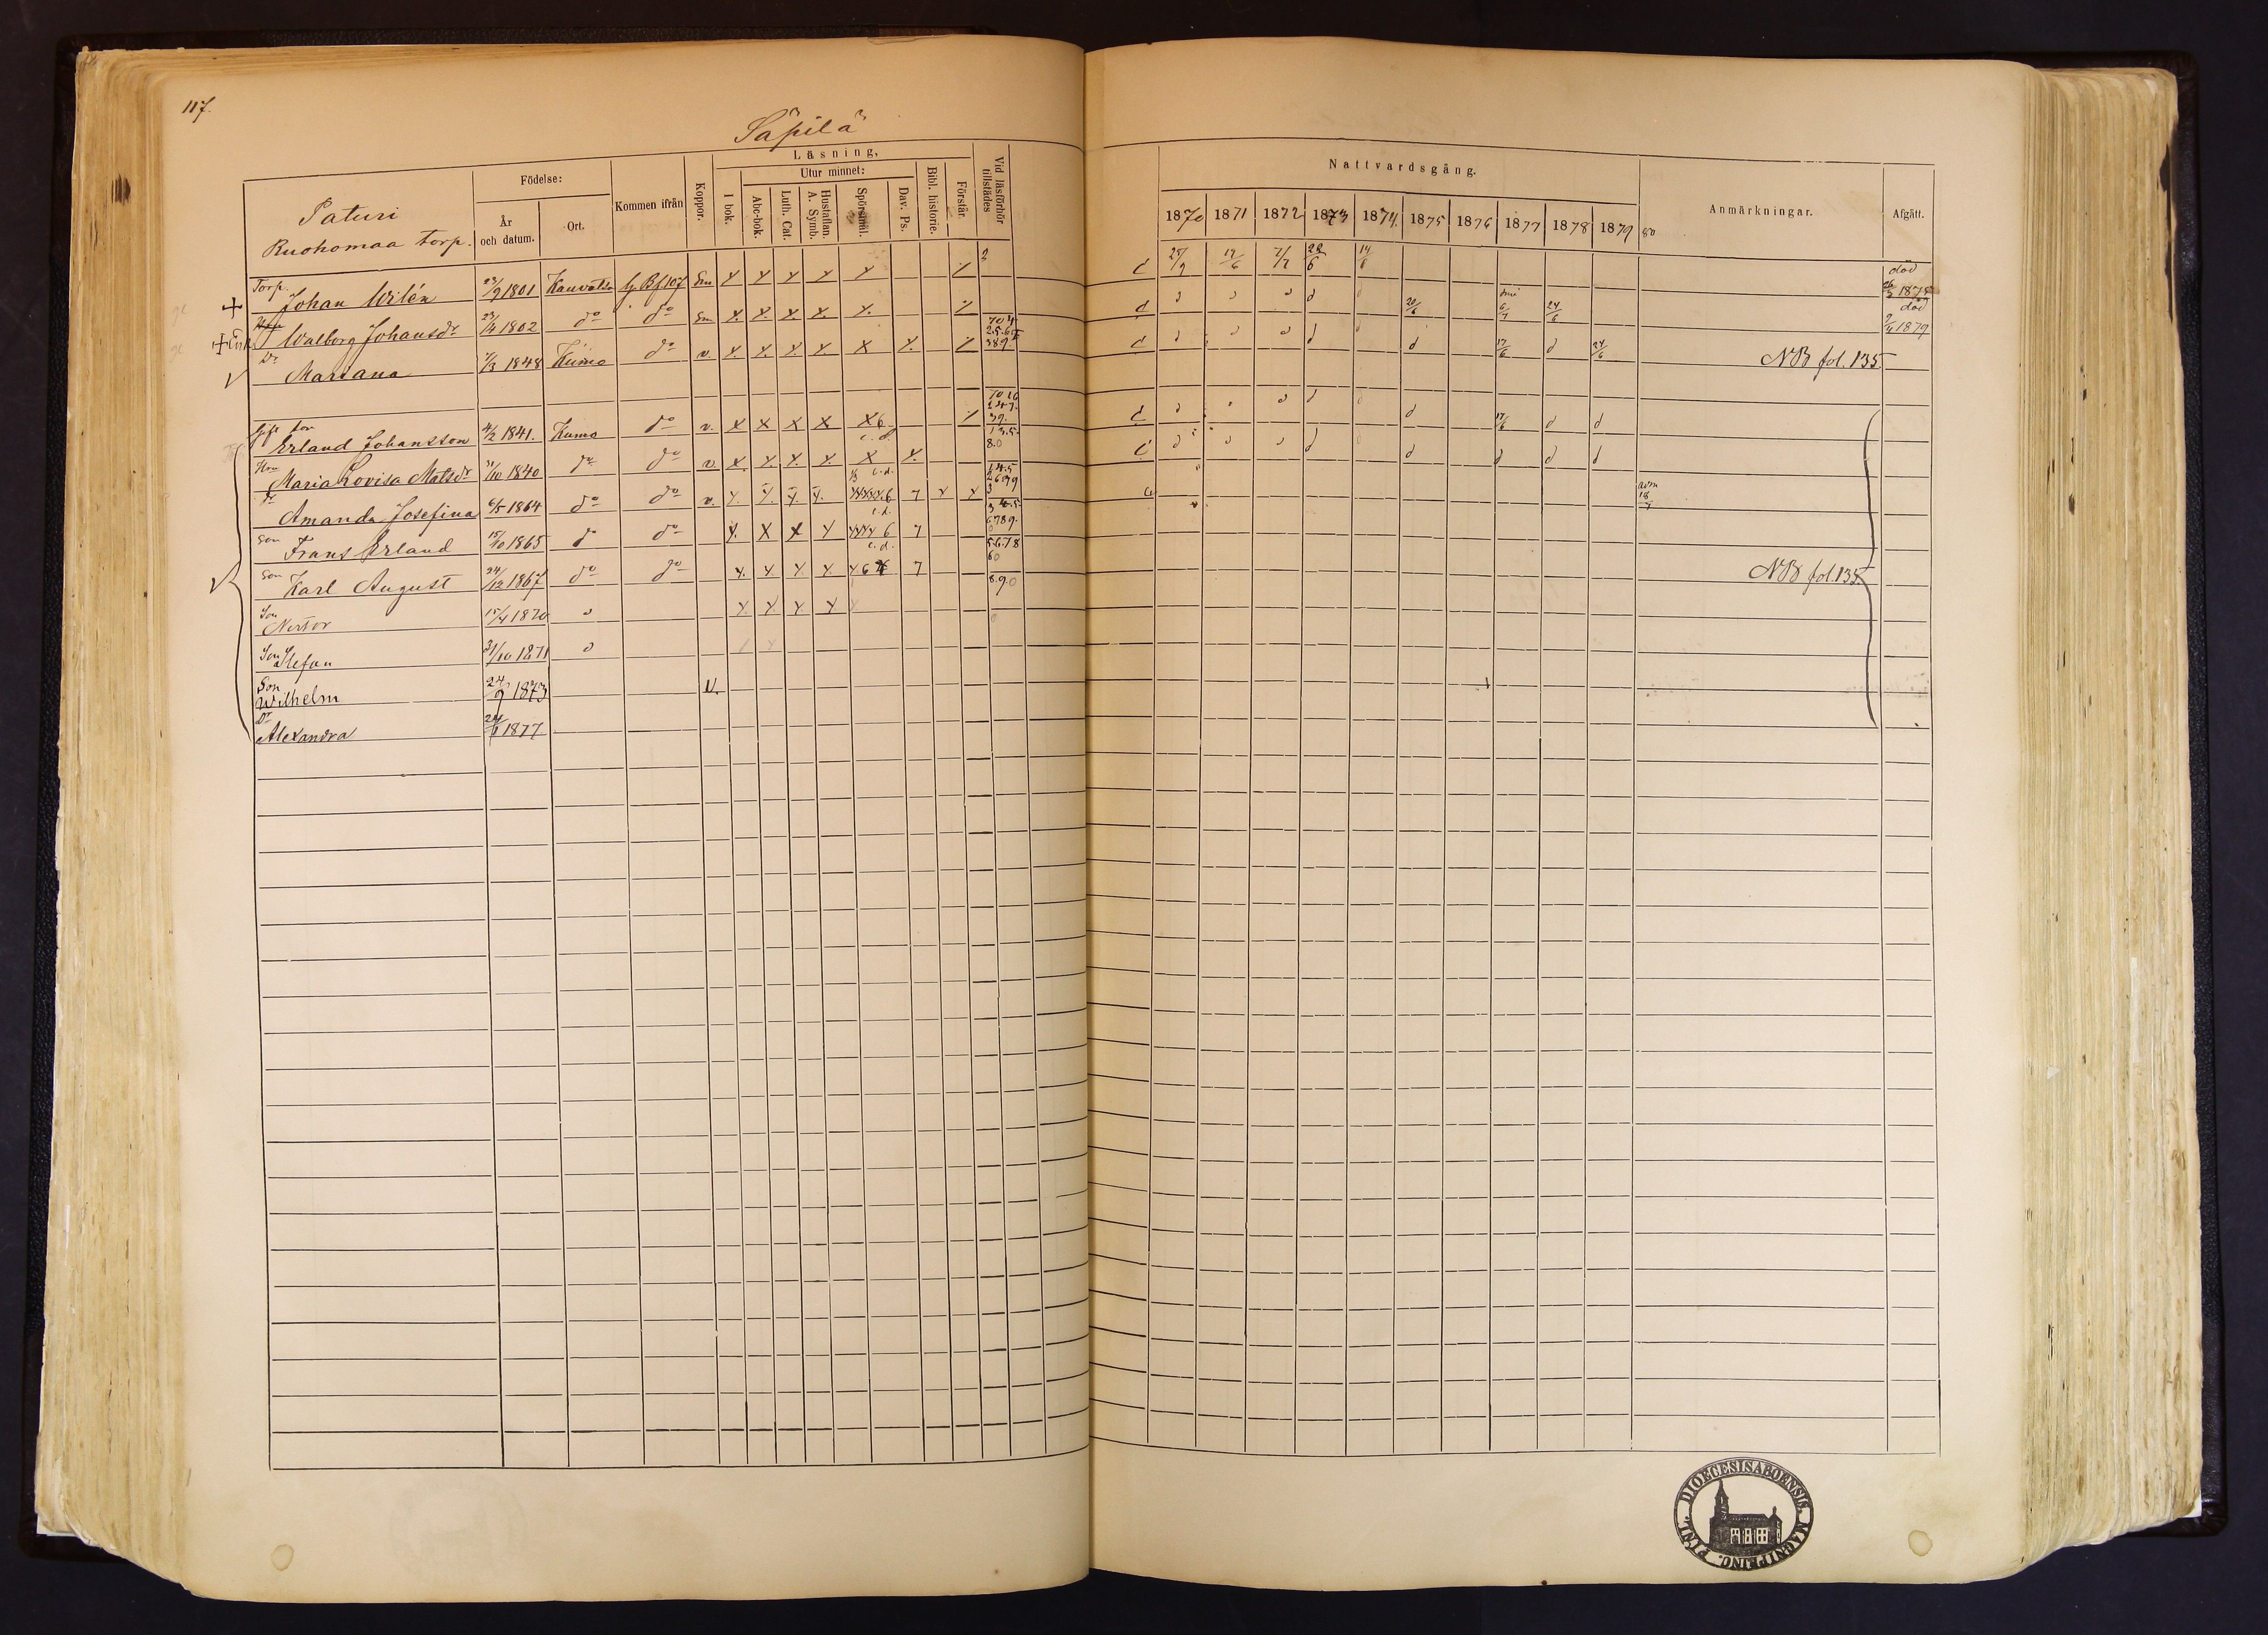 117.
Säpilä
Paturi
Ruohomaa torp.
Födelse:
År och datum.
Ort.
Kommen ifrån
Koppor.
Läsning.
I bok.
Utur minnet:
Abc-bok.
Luth. Cat.
Hustaflan. A. Symb.
Spörsmål.
Dav. Ps.
Bibl. historie.
Förstår.
Vid läsförhör tillstädes
Nattvardsgång.
1870 1871 1872 1873 1874. 1875 1876 1877 1878 1879 80
Anmärkningar.
Afgått.
Torp. Johan Wilén 23/9 1801 Kauvatsa G. Bf 107 Sm x x x x x / 2 C 25/9 7/7 28/6 14/6 död 26/3 1875
Enk. Walborg Johansdr 23/4 1802 do do Sm x. x. x. x. x. / d 20/6 6/7 24/6 död 9/4 1879
Dr Mariana 7/3 1848 Kumo do v. x x x x x x. / 389. d d 17/6 d 24/6 NB fol. 135.
Gift son Erland Johansson 4/2 1841. Kumo do v. x x x x x6 / d d 17/6 d d
Hru Maria Lovisa Matsdr 31/10 1840 do do v. x x. x. x. x x. d d d d d
dr Amanda Josefina 6/5 1864 do do v. x. x. x. x. 7 x x adm 18/7
Son Frans Erland 15/10 1865 do do x. x x x 6 7 6789.
Son Karl August 24/12 1867 do do x. x x x x 6 7 5678 60 NB fol. 135.
Son Nestor 15/4 1870 d x x x x 8.90
Son Stefan 31/10 1871 d
Son Wilhelm 24/9 1873 v.
Dr Alexandra 24/6 1877
DIOECESIS ABOENSIS. MAGNI PRINC. FINL.